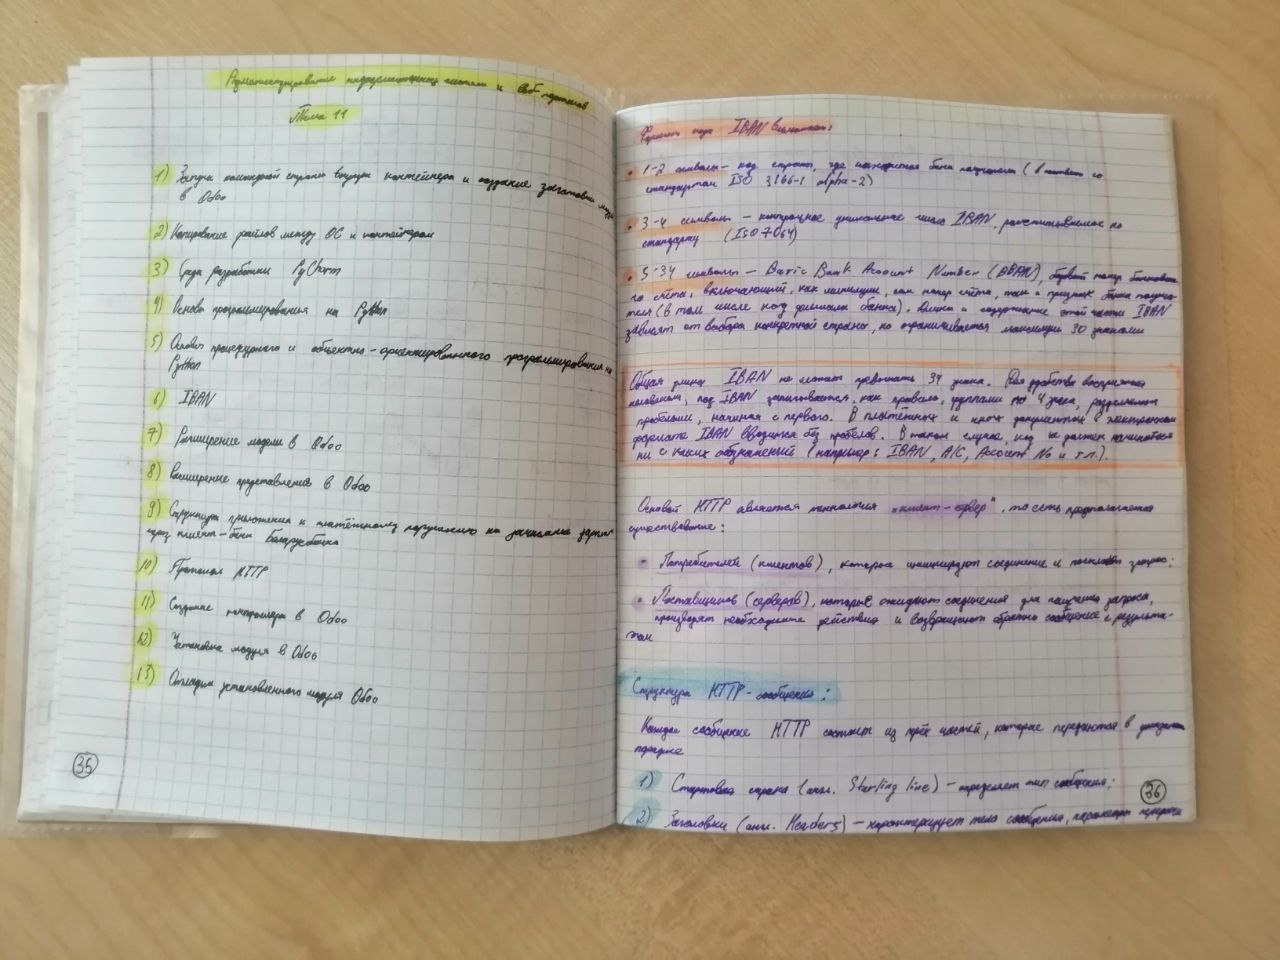 Администрирование информационных систем и веб-порталов
Тема 11
1) Запуск командной строки внутри контейнера и создание заготовки модуля
в Odoo
2) Копирование файлов между ОС и контейнером
3) Среда разработки PyCharm
4) Основы программирования на Python
5) Основы процедурного и объектно-ориентированного программирования на
Python
6) IBAN
7) Расширение модели в Odoo
8) Расширение представления в Odoo
9) Структура приложения к платёжному поручению на зачисление
через клиент-банк Беларусбанка
10) Протокол HTTP
11) Создание контроллера в Odoo
12) Установка модуля в Odoo
13) Отладка установленного модуля Odoo
35
Формат кода IBAN
• 1-2 символы – код страны, где находится банк получателя (в соответ. со
стандартом ISO 3166-1 alpha-2)
• 3-4 символы – контрольное уникальное число IBAN, рассчитываемое по
стандарту (ISO 7064)
• 5-34 символы – Basic Bank Account Number (BBAN), номер банковско-
го счёта, включающий, как минимум, сам номер счёта, так и признак банка получа-
теля (в том числе код филиала банка). Длина и содержание этой части IBAN
зависят от выбора конкретной страны, но ограничивается максимум 30 знаками
Общая длина IBAN не может превышать 34 знака. Для удобства восприятия
человеком, код IBAN записывается, как правило, группами по 4 знака, разделяемых
пробелами, начиная с первого. В платёжных и иных документах в электронном
формате IBAN вводится без пробелов. В таком случае, код не должен начинаться
ни с каких обозначений (например: IBAN, A/C, Account No и т.п.).
Основой HTTP является технология „клиент-сервер", то есть предполагается
существование:
• Потребителей (клиентов), которые инициируют соединение и посылают запрос;
• Поставщиков (серверов), которые ожидают соединения для получения запроса,
производят необходимые действия и возвращают обратно сообщение с результа-
том
Структура HTTP-сообщения:
Каждое сообщение HTTP состоит из трёх частей, которые передаются в указанном
порядке
1) Стартовая строка (англ. Starting line) – определяет тип сообщения;
36
2) Заголовки (англ. Headers) – характеризует тело сообщения, параметры передачи